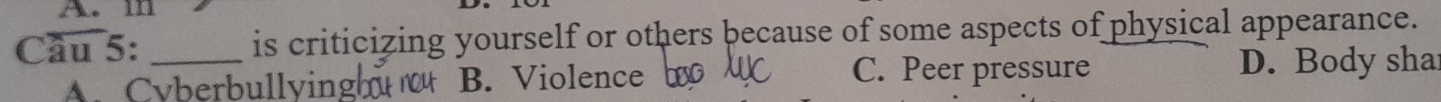 A. in
Câu 5: ______ is criticizing yourself or others because of some aspects of physical appearance.
A. Cyberbullying B. Violence bạo lực C. Peer pressure D. Body sha